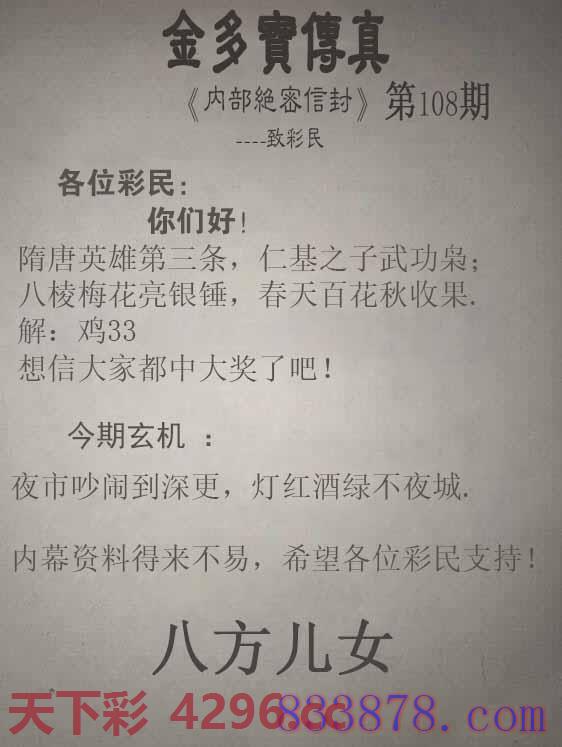 金多寶傳真
《内部絕密信封》第108期
----致彩民
各位彩民:
你们好!
隋唐英雄第三条，仁基之子武功枭;
八棱梅花亮银锤，春天百花秋收果.
解：鸡33
想信大家都中大奖了吧!
今期玄机 ：
夜市吵闹到深更，灯红酒绿不夜城.
内幕资料得来不易，希望各位彩民支持!
八方儿女
天下彩 4296.cc
883878.com